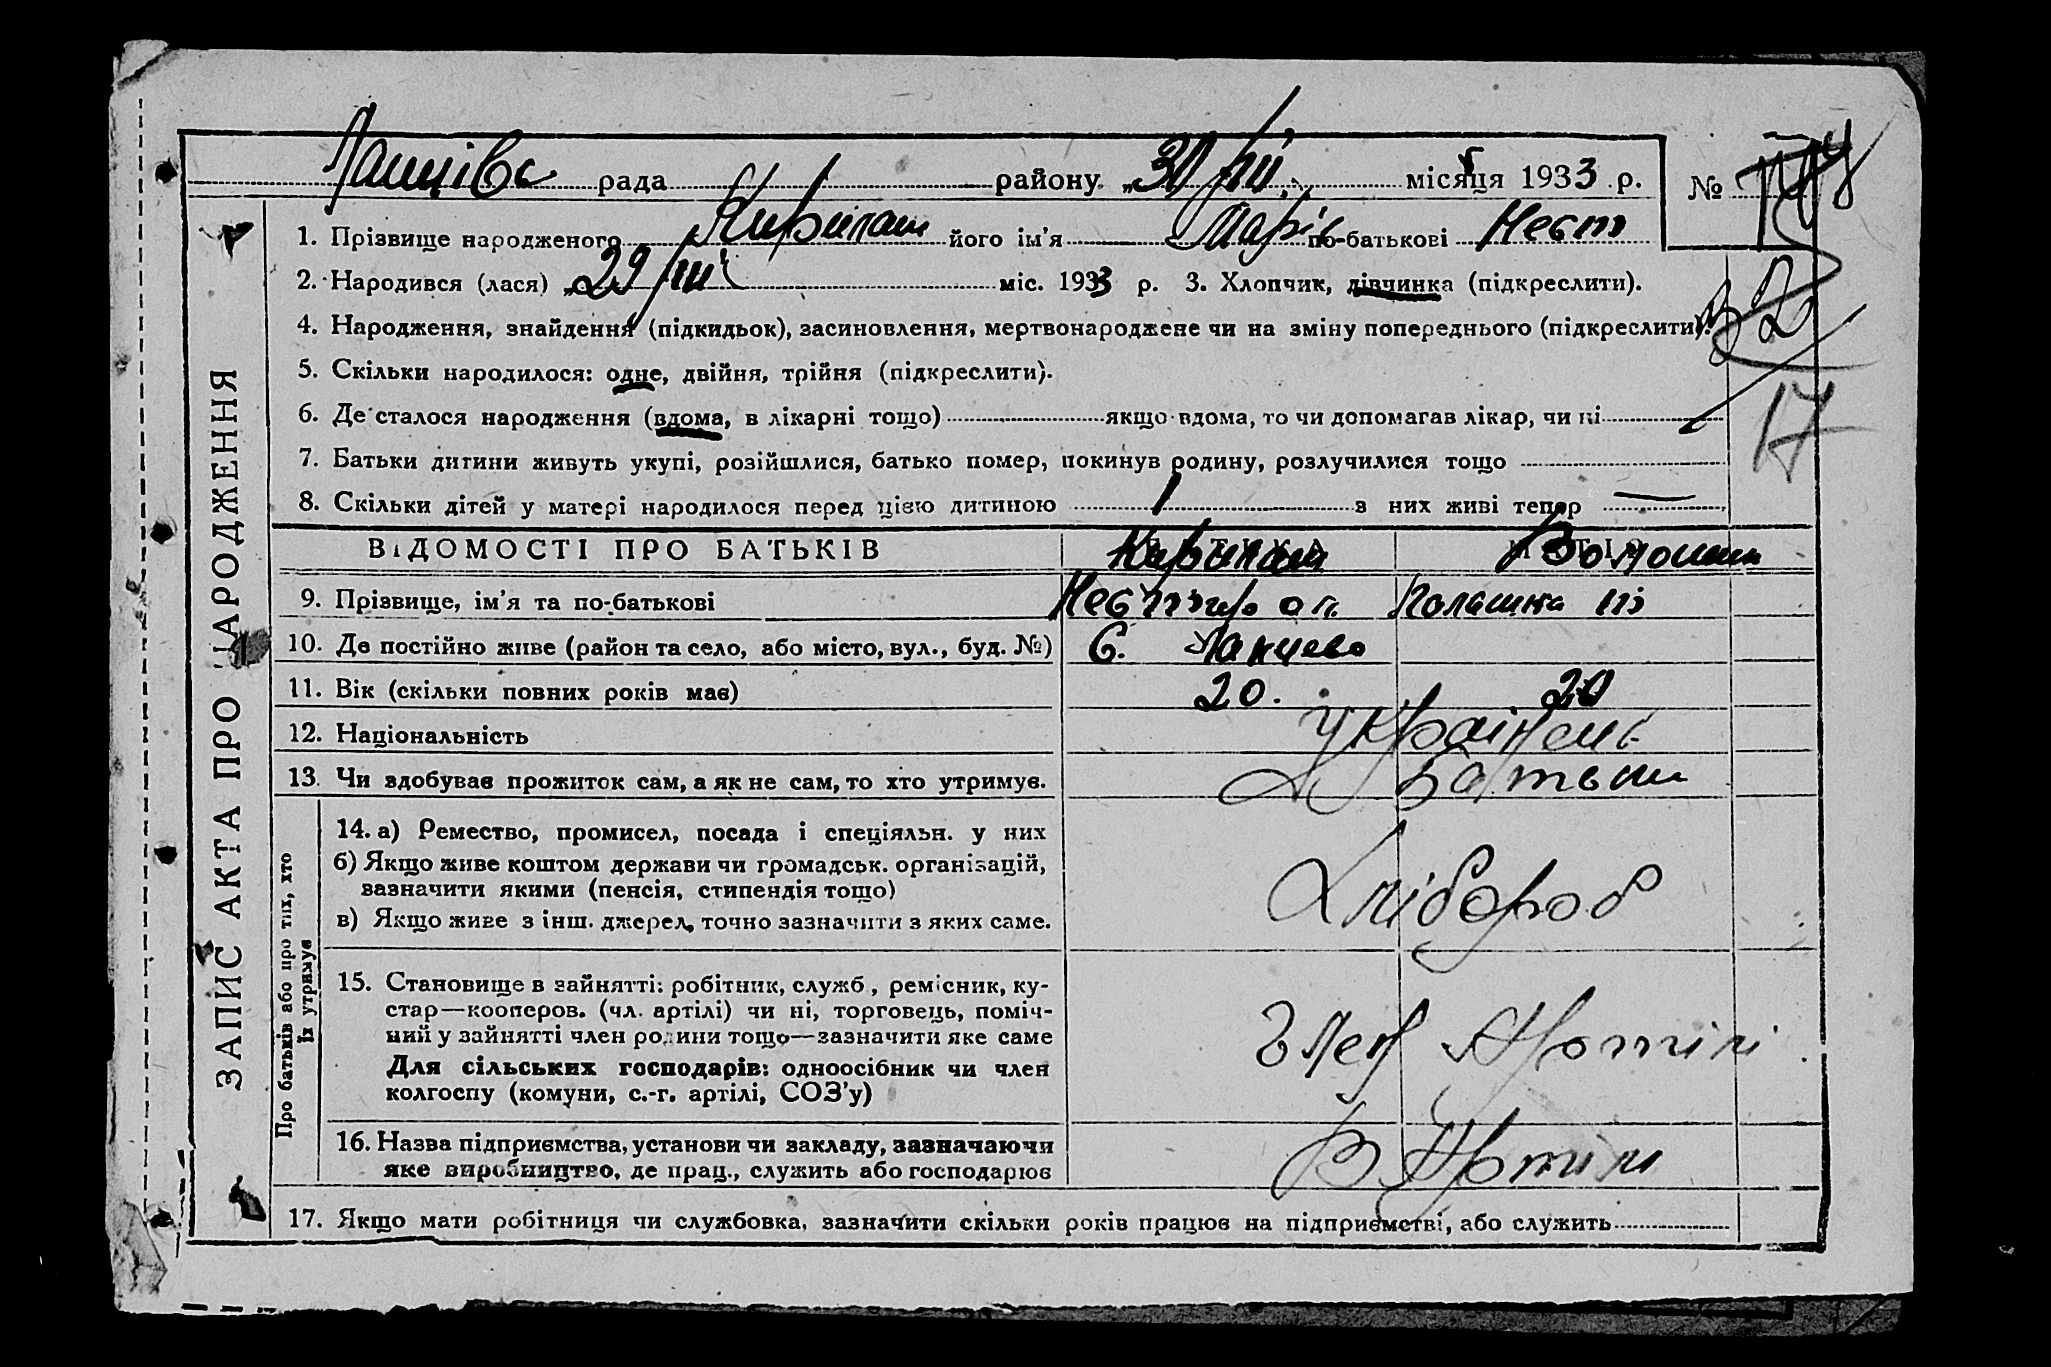 рада району „30/III місяця 1933 р. №
1. Прізвище народженого його ім'я Марія по-батькові Нест
2. Народився (лася) „29/III міс. 1933 р. 3. Хлопчик, дівчинка (підкреслити).
4. Народження, знайдення (підкидьок), засиновлення, мертвонароджене чи на зміну попереднього (підкреслити).
5. Скільки народилося: одне, двійня, трійня (підкреслити).
6. Де сталося народження (вдома, в лікарні тощо) якщо вдома, то чи допомагав лікар, чи ні
17
7. Батьки дитини живуть укупі, розійшлися, батько помер, покинув родину, розлучилися тощо
8. Скільки дітей у матері народилося перед цією дитиною 1 з них живі тепер —
ВІДОМОСТІ ПРО БАТЬКІВ
9. Прізвище, ім'я та по-батькові
10. Де постійно живе (район та село, або місто, вул., буд. №) С.
11. Вік (скільки повних років має) 20. 20
12. Національність українець
13. Чи здобував прожиток сам, а як не сам, то хто утримує. батьки
14. а) Ремество, промисел, посада і спеціяльн. у них
б) Якщо живе коштом держави чи громадськ. організацій,
зазначити якими (пенсія, стипендія тощо)
в) Якщо живе з інш. джерел, точно зазначити з яких саме.
Хлібороб
15. Становище в зайнятті: робітник, служб., ремісник, ку-
стар—кооперов. (чл. артілі) чи ні, торговець, поміч-
ний у зайнятті член родини тощо—зазначити яке саме
Для сільських господарів: одноосібник чи член
колгоспу (комуни, с.-г. артілі, СОЗ'у)
Член Артілі
16. Назва підприємства, установи чи закладу, зазначаючи
яке виробництво, де прац., служить або господарює
В Артілі
17. Якщо мати робітниця чи службовка, зазначити скільки років працює на підприємстві, або служить
ЗАПИС АКТА ПРО НАРОДЖЕННЯ
Про батьків або про тих, хто
їх утримує